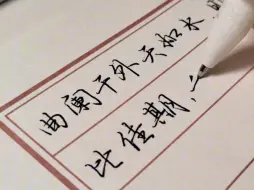 曲阑干外天如水
比佳期，